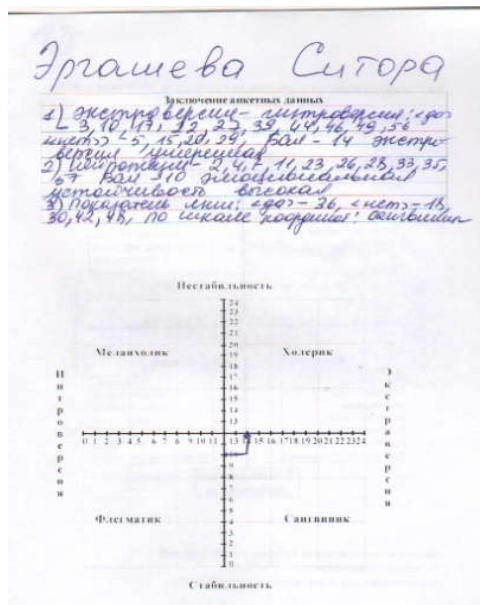 Эргашева Ситора
Заключение анкетных данных
1) экстраверсия - интроверсия: «да»
- 3, 10, 17, 22, 25, 39, 44, 46, 49, 56
«нет» - 5, 15, 20, 29, Бал - 14 экстра-
версия умеренная
2) 2, 4, 7, 11, 23, 26, 28, 33, 35,
57 Бал 10 эмоциональная
устойчивость высокая
3) Показатель лжи: «да» - 36, «нет» - 18,
30, 42, 48, по шкале координат: сангвиник
Нестабильность
24
23
22
21
20
19
18
17
16
15
14
13
Меланхолик Холерик
Интроверсия
Экстраверсия
0 1 2 3 4 5 6 7 8 9 10 11 12 13 15 16 17 18 19 20 21 22 23 24
9
8
7
6
5
4
3
2
1
0
Флегматик Сангвиник
Стабильность